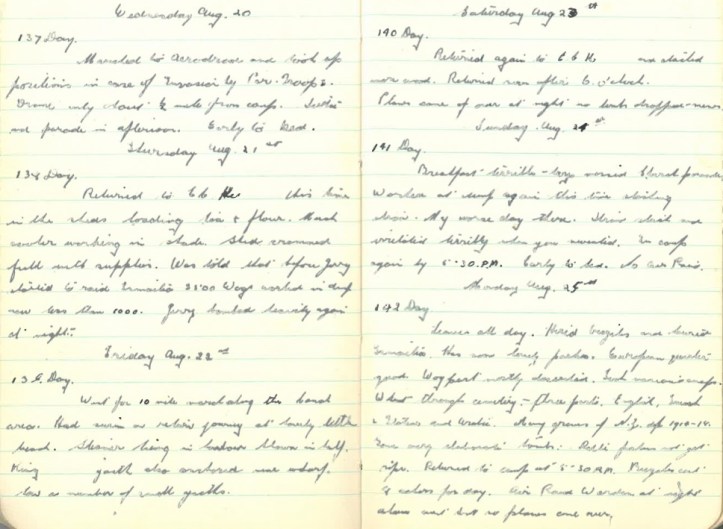 Wednesday Aug. 20
137 Day.
Marched to Aerodrome and took up
positions in case of Invasion by Par. Troops.
Drome only about ½ mile from camp.
parade in afternoon. Early to bed.
Thursday Aug. 21st
138 Day.
Returned to this time
in the sheds loading tea & flour. Much
cooler working in shade. Shed crammed
full with supplies. Was told that before Jerry
started to raid Ismailia 3500 Wogs worked in dump
now less than 1000. Jerry bombed heavily again
at night.
Friday Aug. 22nd
Day.
Went for 10 mile march along the canal
area. Had swim on return journey at lovely little
beach. Steamer lying in harbour blown in half.
King yacht also anchored near wharf.
Saw a number of small yachts.
Saturday Aug 23th
140 Day.
Returned again to and started
Returned soon after 6. o'clock.
Planes came over at night no bombs dropped-
Sunday Aug. 24th.
141 Day.
Breakfast terrible - boys missed Church parade.
Worked at dump again this time
My worse day there. and
irritated terribly when you sweated. In camp
again by 5-30.P.M. Early to bed. No Air Raid.
Monday Aug. 25nd
142 Day
Leave all day. and
Ismailia. Has some lovely parks. European quarter
good. Wog part mostly deserted.
Went through cemetery - places for English, French
& Arabic. Many graves of N.Z. 1915-18.
Some very elaborate tombs. not yet
ripe. Returned to camp at 5-30.P.M.
of for day. Air Raid Warden at night
but no planes came over.